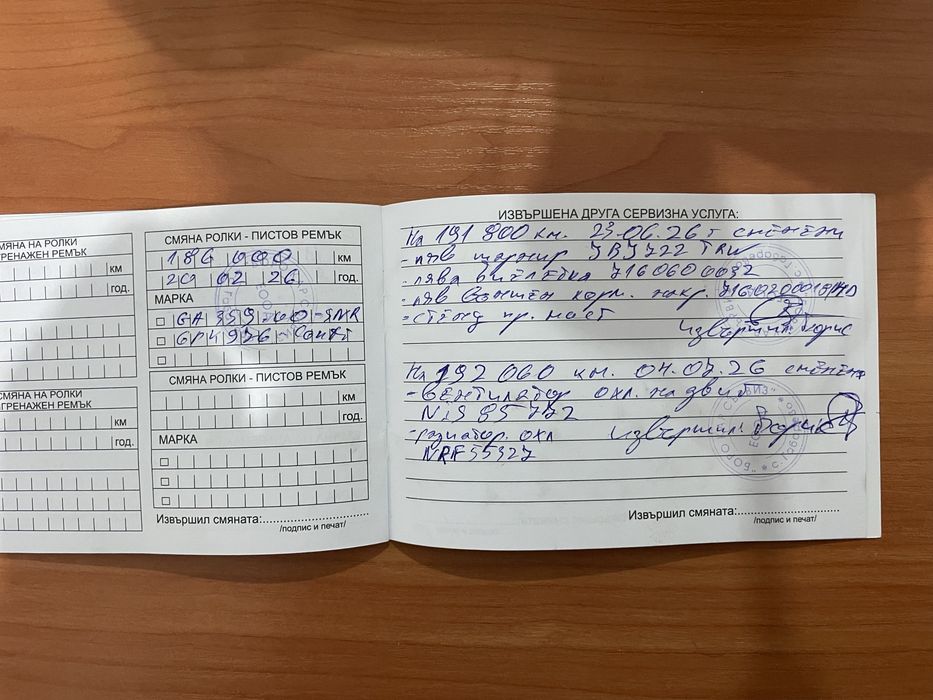 СМЯНА НА РОЛКИ
ГРЕНАЖЕН РЕМЪК
км
год.
СМЯНА НА РОЛКИ
ГРЕНАЖЕН РЕМЪК
км
год.
СМЯНА РОЛКИ - ПИСТОВ РЕМЪК
186 000 км
20 02 26 год.
МАРКА
GA 355 -SNR
Conti
СМЯНА РОЛКИ - ПИСТОВ РЕМЪК
км
год.
МАРКА
Извършил смяната:
/подпис и печат/
ИЗВЪРШЕНА ДРУГА СЕРВИЗНА УСЛУГА:
На 191 800 км. 23.06.26 г сменени
- ляв шарнир JBJ722 TRW
- лява биелетка 7160600032
- ляв външен корм. накр.
- стенд пр. мост
Извършил Борис
На 192 060 км. 04.07.26 сменени
- вентилатор охл. на двиг.
NIS 85772
- радиатор охл
NRF 55327
Извършил Борис
Извършил смяната:
/подпис и печат/